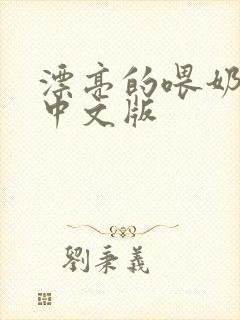 漂亮的喂奶
中文版
劉秉義